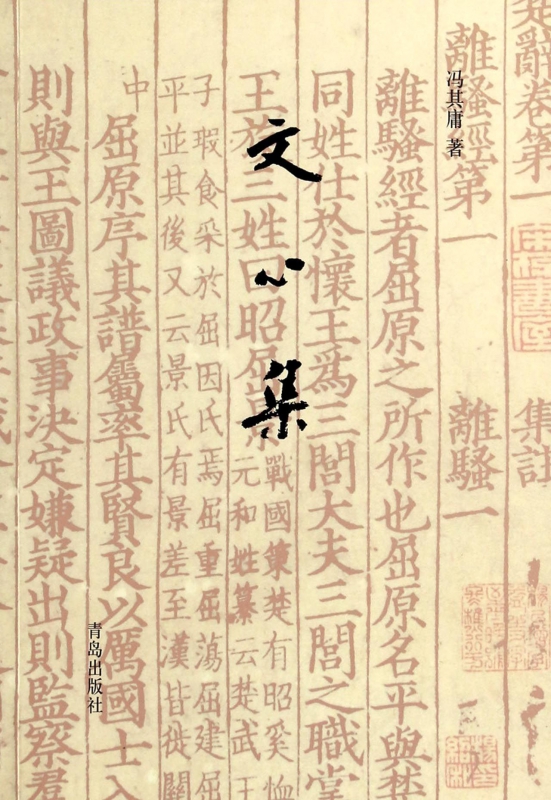 楚辭卷第一
集註
離騷經第一
離騷一
離騷經者屈原之所作也屈原名平與楚
同姓仕於懷王爲三閭大夫三閭之職掌
王族三姓曰昭屈景
戰國策楚有昭奚恤
元和姓纂云楚武王
子瑕食采於屈因氏焉屈重屈蕩屈建屈
平並其後又云景氏有景差至漢皆徙關
中
屈原序其譜屬率其賢良以厲國士入
則與王圖議政事決定嫌疑出則監察羣
冯其庸 著
文心集
青岛出版社